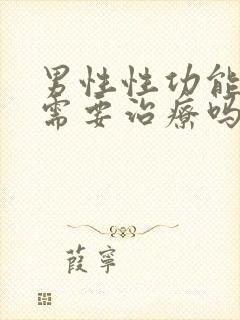 男性性功能
需要治療吗
葭寧